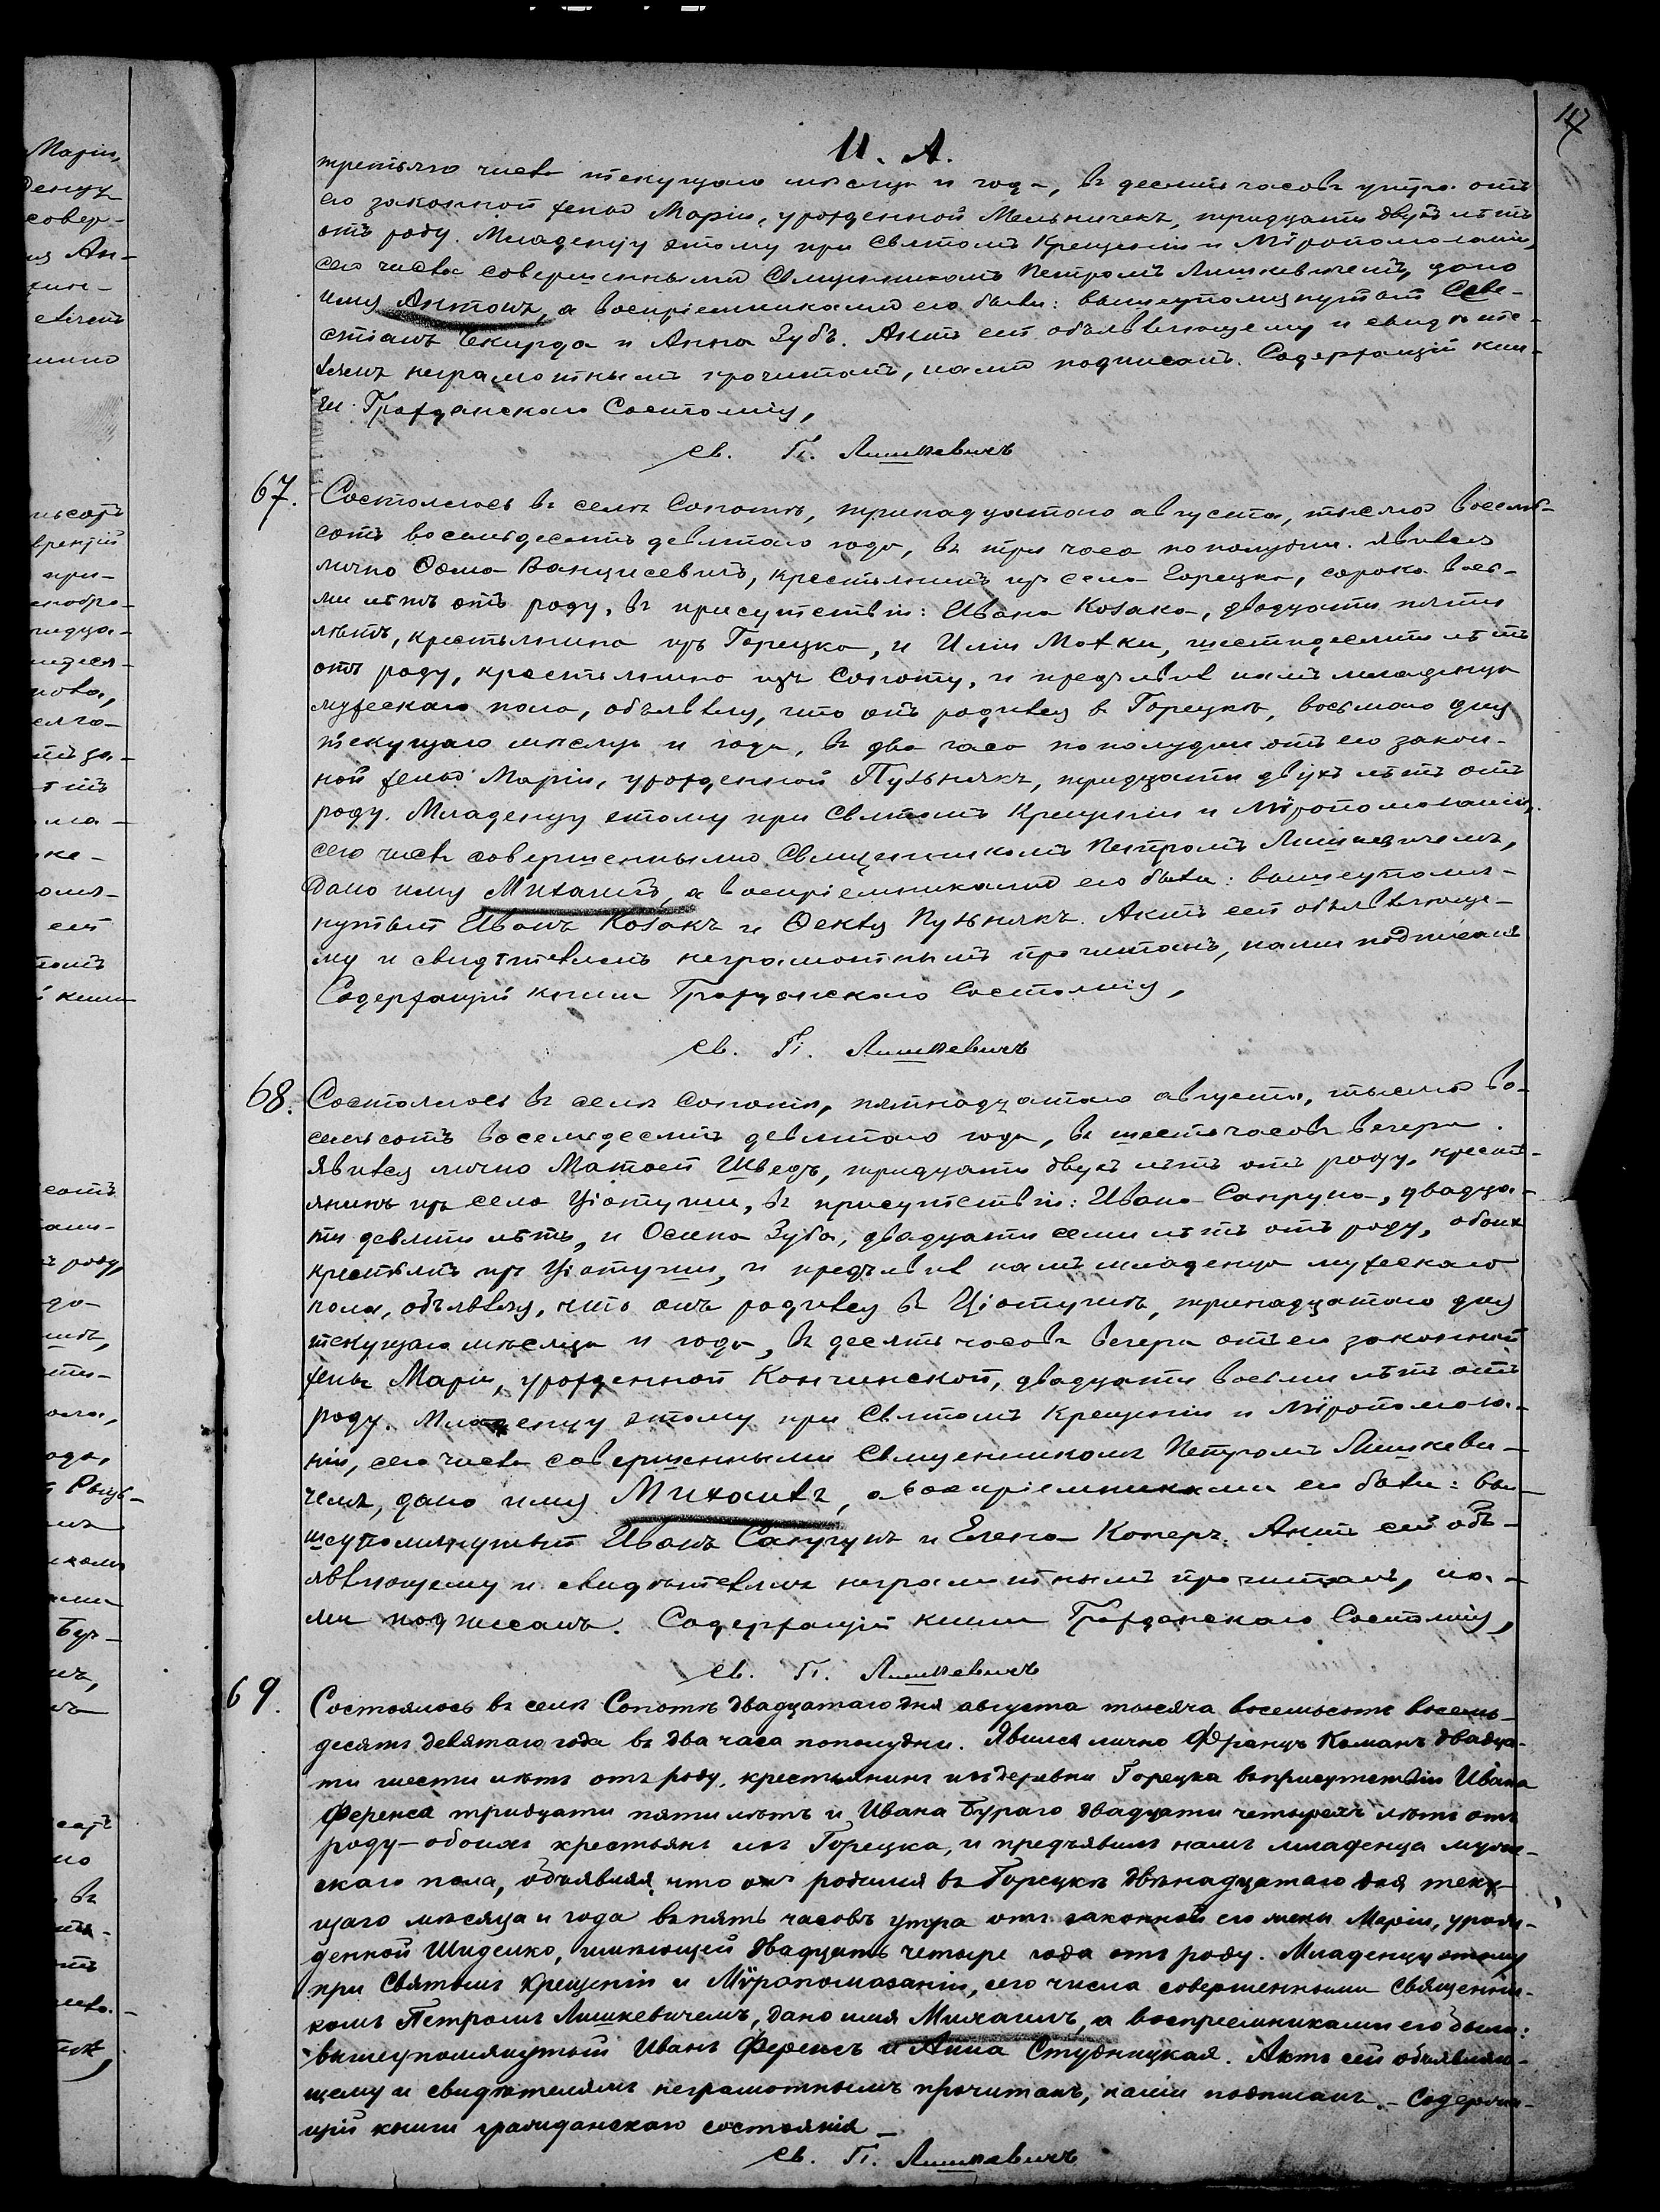 117
11. А.
третьяго числа текущаго мѣсяца и года, въ десять часовъ утра отъ
его законной жены Маріи, урожденной Мельничекъ, тридцати двухъ лѣтъ
отъ роду. Младенцу этому при Святомъ Крещеніи и Мѵропомазаніи,
сего числа совершенными Священникомъ Петромъ Лишкевичемъ, дано
имя Антонъ, а воспріемниками его были: вышеупомянутый Севе-
стіанъ Чекирда и Анна Зубъ. Актъ сей объявляющему и свидѣте-
лямъ неграмотнымъ прочитанъ, нами подписанъ. Содержащій кни-
ги Гражданскаго Состоянія,
Св. П. Лишкевичъ
67. Состоялось въ селѣ Сопотѣ, тринадцатаго августа, тысяча восемь-
сотъ восемьдесятъ девятаго года, въ три часа пополудни. Явился
лично Ѳома Ванцисевичъ, крестьянинъ изъ села Горецка, сорока вось-
ми лѣтъ отъ роду, въ присутствіи: Ивана Козака, двадцати пяти
лѣтъ, крестьянина изъ Горецка, и Иліи Матки, шестидесяти лѣтъ
отъ роду, крестьянина изъ Сопоту, и предъявилъ намъ младенца
мужескаго пола, объявляя, что онъ родился въ Горецкѣ, восьмого дня
текущаго мѣсяца и года, въ два часа пополудни отъ его закон-
ной жены Маріи, урожденной Пузьнякъ, тридцати двухъ лѣтъ отъ
роду. Младенцу етому при Святомъ Крещеніи и Мѵропомазаніи,
сего числа совершенными Священникомъ Петромъ Лишкевичемъ,
дано имя Михаилъ, а воспріемниками его были: вышеупомя-
нутый Иванъ Козакъ и Ѳекля Пузьнякъ. Актъ сей объявляюще-
му и свидѣтелямъ неграмотнымъ прочитанъ, нами подписанъ
Содержащій книги Гражданскаго Состоянія,
Св. П. Лишкевичъ
68. Состоялось въ селѣ Сопотѣ, пятнадцатаго августа, тысяча во-
семьсотъ восемьдесятъ девятаго года, въ шесть часовъ вечера.
Явился лично Матѳей Шведъ, тридцати двухъ лѣтъ отъ роду, кресть-
янинъ изъ села Ціотуши, въ присутствіи: Ивана Сапруна, двадца-
ти девяти лѣтъ, и Осипа Зуба, двадцати семи лѣтъ отъ роду, обоихъ
крестьянъ изъ Ціотуши, и предъявилъ намъ младенца мужескаго
пола, объявляя, что онъ родился въ Ціотушѣ, тринадцатаго дня
текущаго мѣсяца и года, въ десять часовъ вечера отъ его законной
жены Маріи, урожденной Кончинской, двадцати восьми лѣтъ отъ
роду. Младенцу этому при Святомъ Крещеніи и Мѵропомаза-
ніи, сего числа совершенными Священникомъ Петромъ Лишкеви-
чемъ, дано имя Михаилъ, а воспріемниками его были: вы-
шеупомянутый Иванъ Сапрунъ и Елена Коперъ. Актъ сей объ-
являющему и свидѣтелямъ неграмотнымъ прочитанъ, на-
ми подписанъ. Содержащій книги Гражданскаго Состоянія,
Св. П. Лишкевичъ
69. Состоялось въ селѣ Сопотѣ двадцатаго дня августа тысяча восемьсотъ восемь-
десятъ девятаго года въ два часа пополудни. Явился лично Францъ Команъ двадца-
ти шести лѣтъ отъ роду, крестьянинъ изъ деревни Горецка въ присутствіи Ивана
Ференса тридцати пяти лѣтъ и Ивана Бураго двадцати четырехъ лѣтъ отъ
роду - обоихъ крестьянъ изъ Горецка, и предъявилъ намъ младенца муже-
скаго пола, объявляя, что онъ родился въ Горецкѣ двѣнадцатаго дня теку-
щаго мѣсяца и года въ пять часовъ утра отъ законной его жены Маріи, урож-
денной Шиделко, имѣющей двадцать четыре года отъ роду. Младенцу этому
при Святомъ Крещеніи и Мѵропомазаніи, сего числа совершенными Священни-
комъ Петромъ Лишкевичемъ, дано имя Михаилъ, а воспріемниками его были:
вышеупомянутый Иванъ Ференсъ и Анна Студницкая. Актъ сей объявляю-
щему и свидѣтелямъ неграмотнымъ прочитанъ, нами подписанъ. - Содержа-
щій книги гражданскаго состоянія -
Св. П. Лишкевичъ